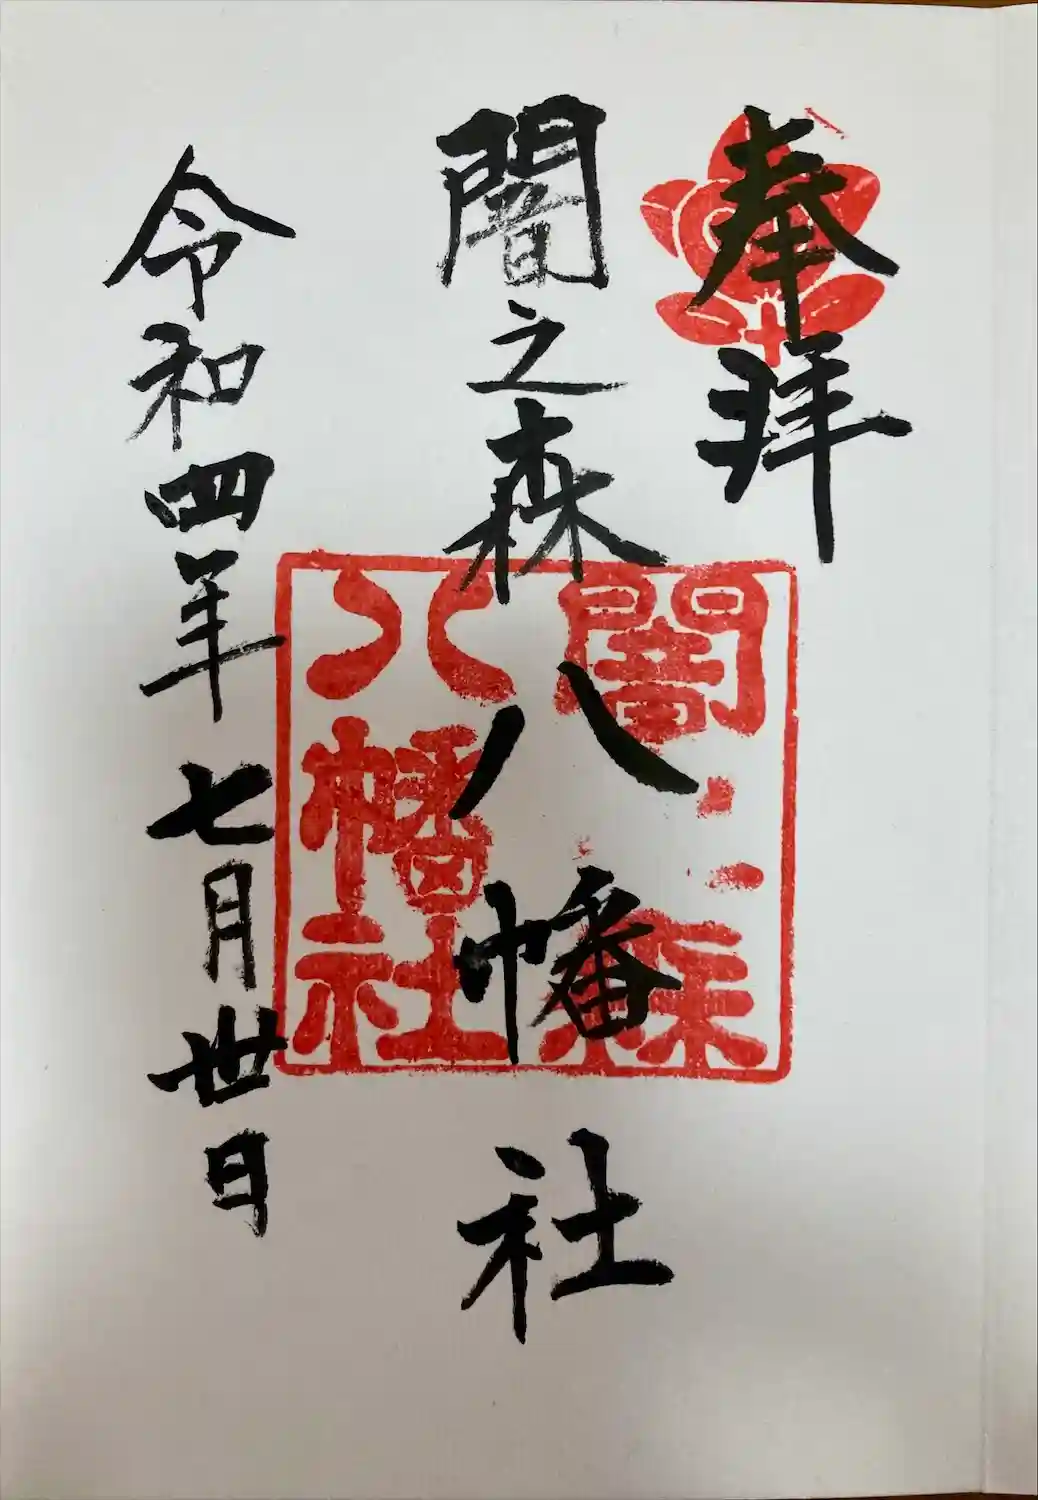 奉拝
闇之森八幡社
闇之森
八幡社
令和四年七月丗日